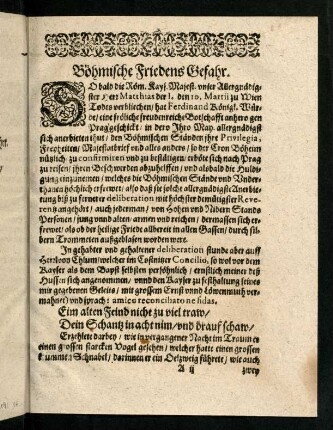 Böhmische Friedens Gefahr.
SO bald die Röm. Kays. Majest. vnser Allergnädig-
ster Herr Matthias der I. den 10. Martii zu Wien
Todes verblichen / hat Ferdinand Königl. Wür-
de / eine fröliche freudenreiche Botschafft anhero gen
Prag geschickt / in dero Ihro May. allergnädigst
sich anerbieten thut / den Böhmischen Ständen ihre Privilegia,
Freyheiten / Majestatbrief vnd alles anders / so der Cron Böheim
nützlich zu confirmiren vnd zu bestätigen / erböte sich nach Prag
zu reisen / jhren Beschwerden abzuhelffen / vnd alsbald die Huldi-
gung einzunemen / welches die Böhmischen Stände vnd Vnder-
thanen höchlich erfrewet / also daß sie solche allergnädigste Anerbie-
tung biß zu ferner deliberation mit höchster demütigster Reve-
rentz angehört / auch jederman / von Hohen vnd Nidern Stands
Personen / jung vnd alten / armen vnd reichen / dermassen sich er-
frewet / als ob der heilige Friede allbereit in allen Gassen / durch sil-
bern Trommeten außgeblasen worden were.
In gehabter vnd gehaltener deliberation stunde aber auff
Herr von Chlum / welcher im Costnitzer Concilio, so wol vor dem
Kayser als dem Bapst selbsten persönlich / ernstlich meiner deß
Hussen sich angenommen / vnnd den Kayser zu festhaltung seines
mir gegebenen Geleits / mit grossem Ernst vnnd Löwenmuth ver-
mahnet) vnd sprach: amico reconciliato ne fidas,
Eim alten Feind nicht zu viel traw /
Dein Schantz in acht nim / vnd drauf schaw /
Erzehlte darbey / wie in vergangener Nacht im Traum er
einen grossen starcken Vogel gesehen / welcher hatte einen grossen
krummen Schnabel / darinnen er ein Oelzweig führete / wie auch
A ij
zwey